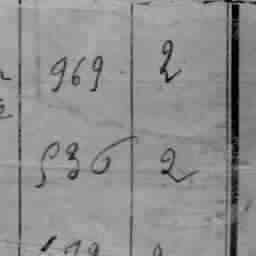 969 2
536 2